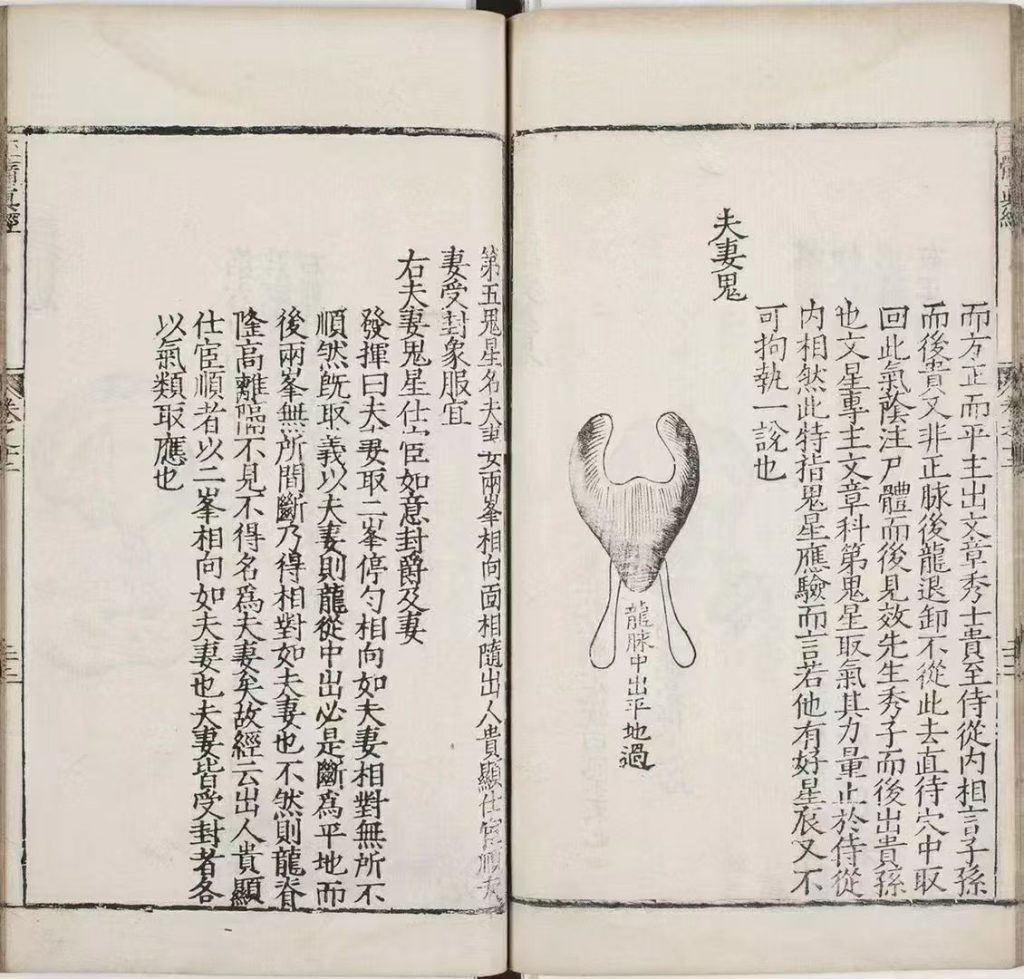 而方正而平主出文章秀士貴至侍從内相言子孫
而後貴又非正脉後龍退卸不從此去直待穴中取
回此氣蔭注尸體而後見效先生秀子而後出貴孫
也文星專主文章科第鬼星取氣其力量止於侍從
内相然此特指鬼星應驗而言若他有好星辰又不
可拘執一說也
夫妻鬼
龍脉中出平地過
第五鬼星名夫妻兩峯相向面相隨出人貴顯仕宦順夫
妻受封象服宜
右夫妻鬼星仕宦如意封爵及妻
發揮曰夫妻取二峯停勻相向如夫妻相對無所不
順然旣取義以夫妻則龍從中出必是斷爲平地而
後兩峯無所間斷乃得相對如夫妻也不然則龍脊
隆高離隔不見不得名爲夫妻矣故經云出人貴顯
仕宦順者以二峯相向如夫妻也夫妻皆受封者各
以氣類取應也
真經
卷之